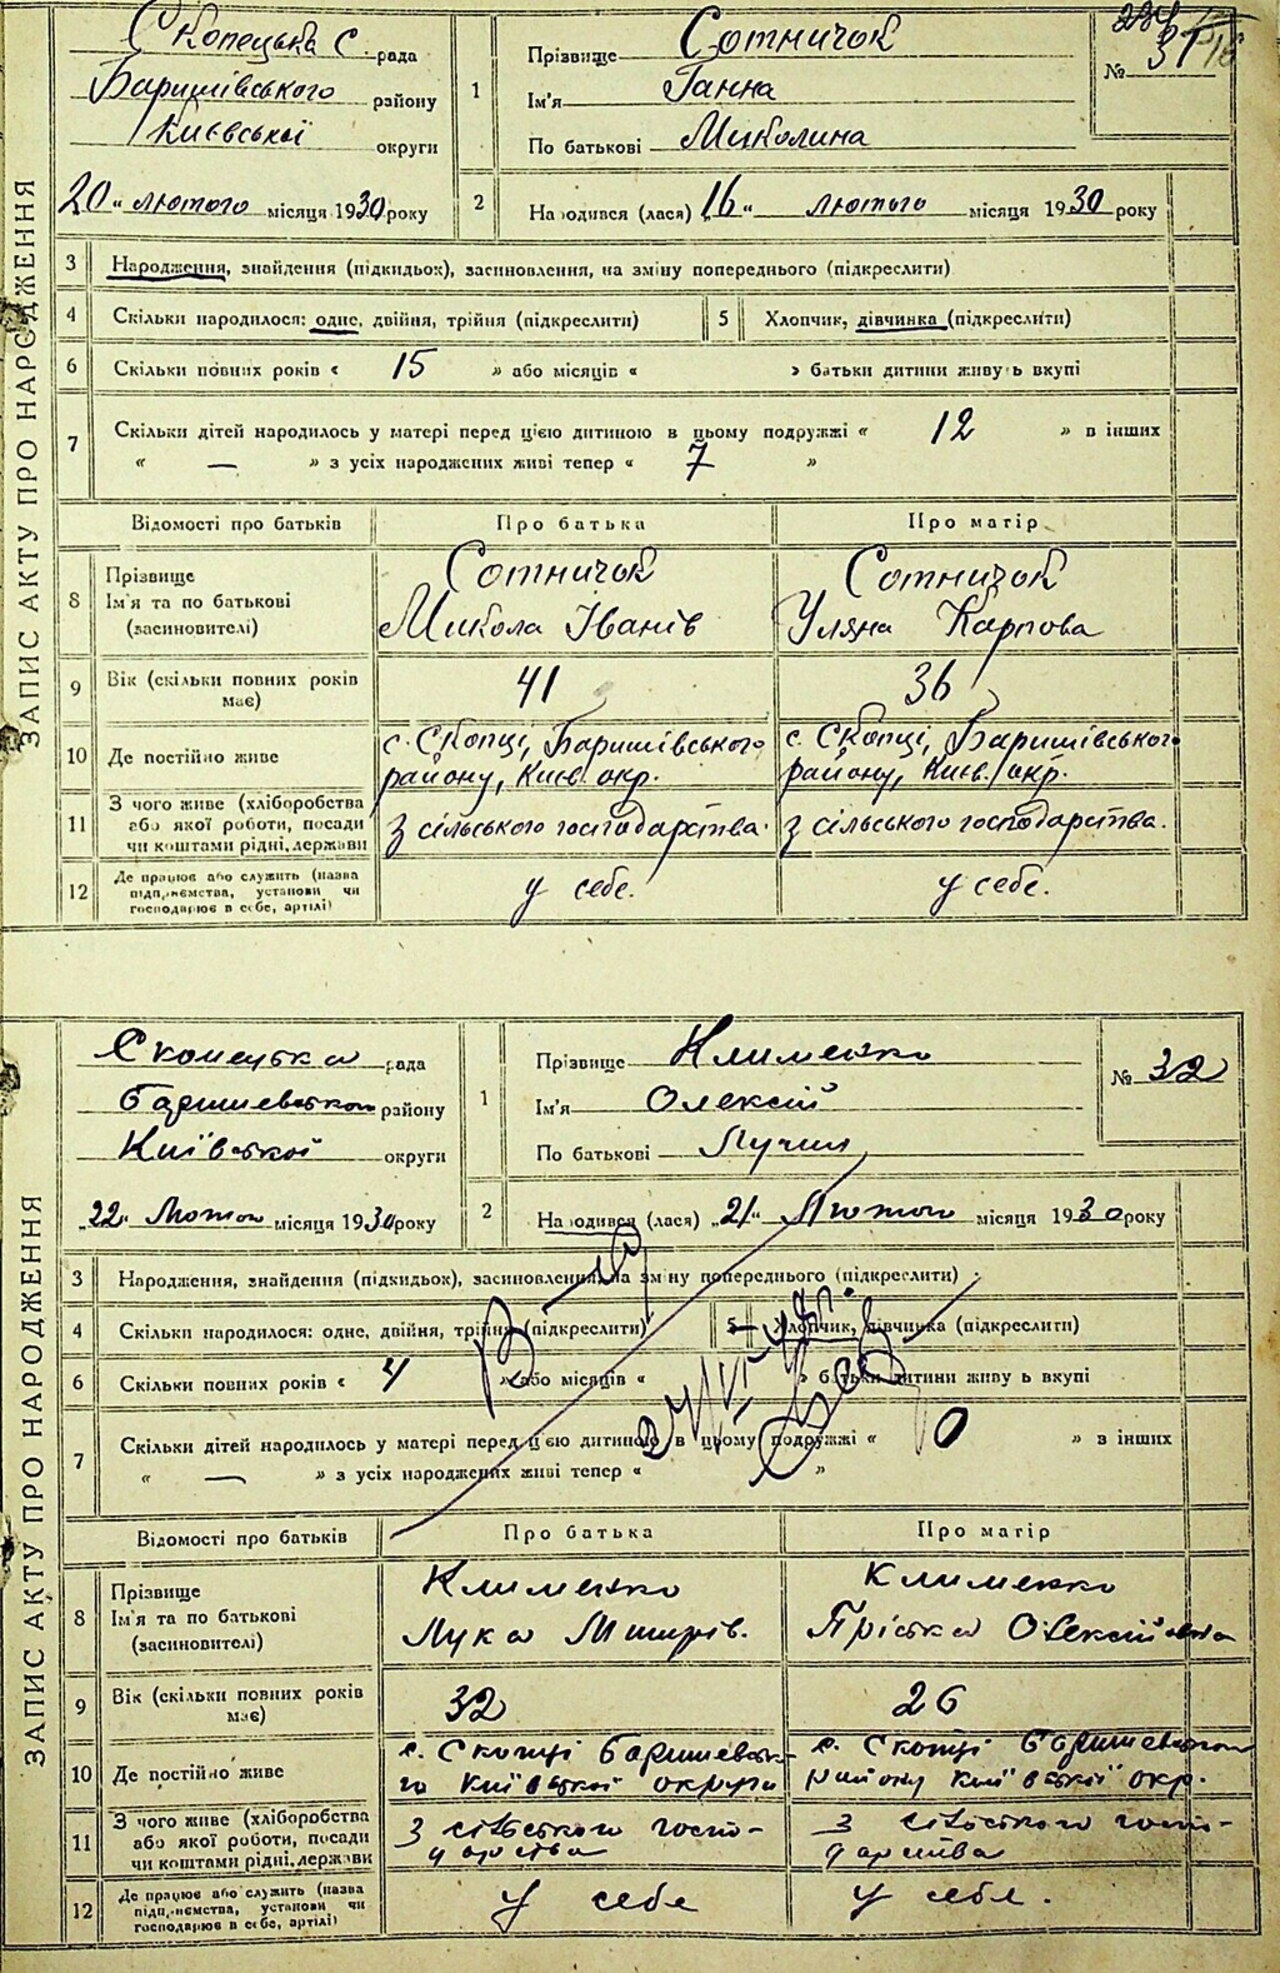 ЗАПИС АКТУ ПРО НАРОДЖЕННЯ
Скопецька с. рада
Баришівського району
Києвської округи
20 „ лютого місяця 1930 року
1 Прізвище Сотничок
Ім'я Ганна
По батькові Миколина
№ 31
2 Народився (лася) „16„ лютого місяця 1930 року
3 Народження, знайдення (підкидьох), засиновлення, на зміну попереднього (підкреслити)
4 Скільки народилося: одне, двійня, трійня (підкреслити) 5 Хлопчик, дівчинка (підкреслити)
6 Скільки повних років « 15 » або місяців « » батьки дитини живуть вкупі
7 Скільки дітей народилось у матері перед цією дитиною в цьому подружжі « 12 » в інших
« — » з усіх народжених живі тепер « 7 »
Відомості про батьків Про батька Про матір
8 Прізвище Ім'я та по батькові (засиновителі)
Сотничок Микола Іванів
Сотничок Уляна Карпова
9 Вік (скільки повних років має) 41 36
10 Де постійно живе
с. Скопці, Баришівського району, Києв. окр.
с. Скопці, Баришівського району, Києв. окр.
11 З чого живе (хліборобства або якої роботи, посади чи коштами рідні, держави
З сільського господарства.
З сільського господарства.
12 Де працює або служить (назва підприємства, установи чи господарює в себе, артілі)
у себе.
у себе.
ЗАПИС АКТУ ПРО НАРОДЖЕННЯ
Скопецька рада
району
Київської округи
„22„ Лютого місяця 1930 року
1 Прізвище Клименко
Ім'я Олексій
По батькові
№ 32
2 Народився (лася) „21„ Лютого місяця 1930 року
3 Народження, знайдення (підкидьох), засиновлення, на зміну попереднього (підкреслити)
4 Скільки народилося: одне, двійня, трійня (підкреслити) 5 Хлопчик, дівчинка (підкреслити)
6 Скільки повних років « 4 » або місяців « » батьки дитини живуть вкупі
7 Скільки дітей народилось у матері перед цією дитиною в цьому подружжі « 0 » в інших
« — » з усіх народжених живі тепер « »
Відомості про батьків Про батька Про матір
8 Прізвище Ім'я та по батькові (засиновителі)
Клименко Лука
Клименко Пріська Олексійовна
9 Вік (скільки повних років має) 32 26
10 Де постійно живе
с. Скопці Київської округи
с. Скопці району Київської окр.
11 З чого живе (хліборобства або якої роботи, посади чи коштами рідні, держави
З сільського господарства
З сільського господарства
12 Де працює або служить (назва підприємства, установи чи господарює в себе, артілі)
у себе
у себе.